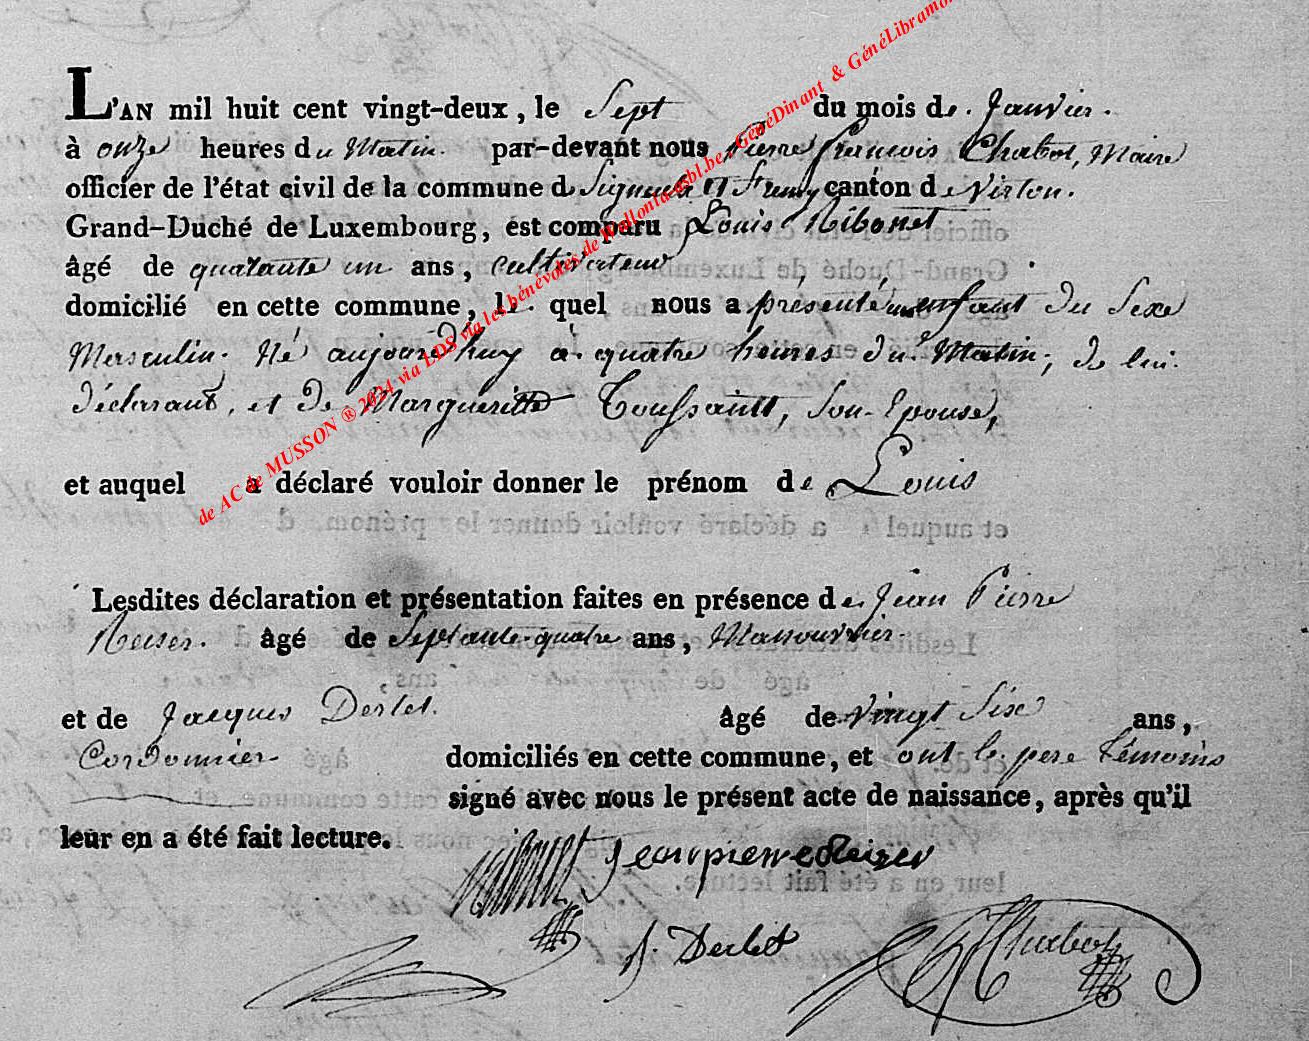 L'AN mil huit cent vingt-deux, le Sept du mois de Janvier.
à onze heures du Matin. par-devant nous Pierre François Chabot, Maire
officier de l'état civil de la commune de Signeulx canton de Virton.
Grand-Duché de Luxembourg, est comparu Louis Ribonet
âgé de quarante un ans, cultivateur
domicilié en cette commune, le quel nous a présenté un enfant du Sexe
Masculin. Né aujourd'huy à quatre heures du Matin; de lui
déclarant, et de Margueritte Toussaint, son Epouse,
et auquel a déclaré vouloir donner le prénom de Louis
Lesdites déclaration et présentation faites en présence de Jean Pierre
Reiser. âgé de Septante-quatre ans, Manouvrier.
et de Jacques Derlet. âgé de vingt Six ans,
Cordonnier domiciliés en cette commune, et ont le pere témoins
signé avec nous le présent acte de naissance, après qu'il
leur en a été fait lecture.
jeanpierre Reiser
J. Derlet
Chabot
de AC de MUSSON ® 2024 via LDS via les bénévoles de Wallonia-asbl.be, GénéDinant & GénéLibramo